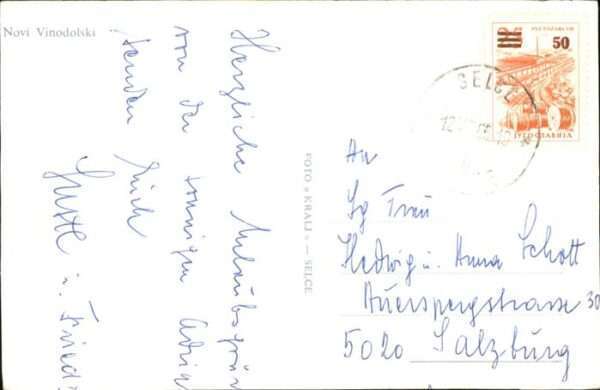 Novi Vinodolski
Herzliche Urlaubsgrüße
von der sonnigen Adria
senden Euch
Gustl u. Friedl
FOTO „KRALJ" — SELCE
50
JUGOSLAVIJA
SELCE
An
Sg Frau
Hedwig u. Anna Schott
Auerspergstrasse 30
5020 Salzburg